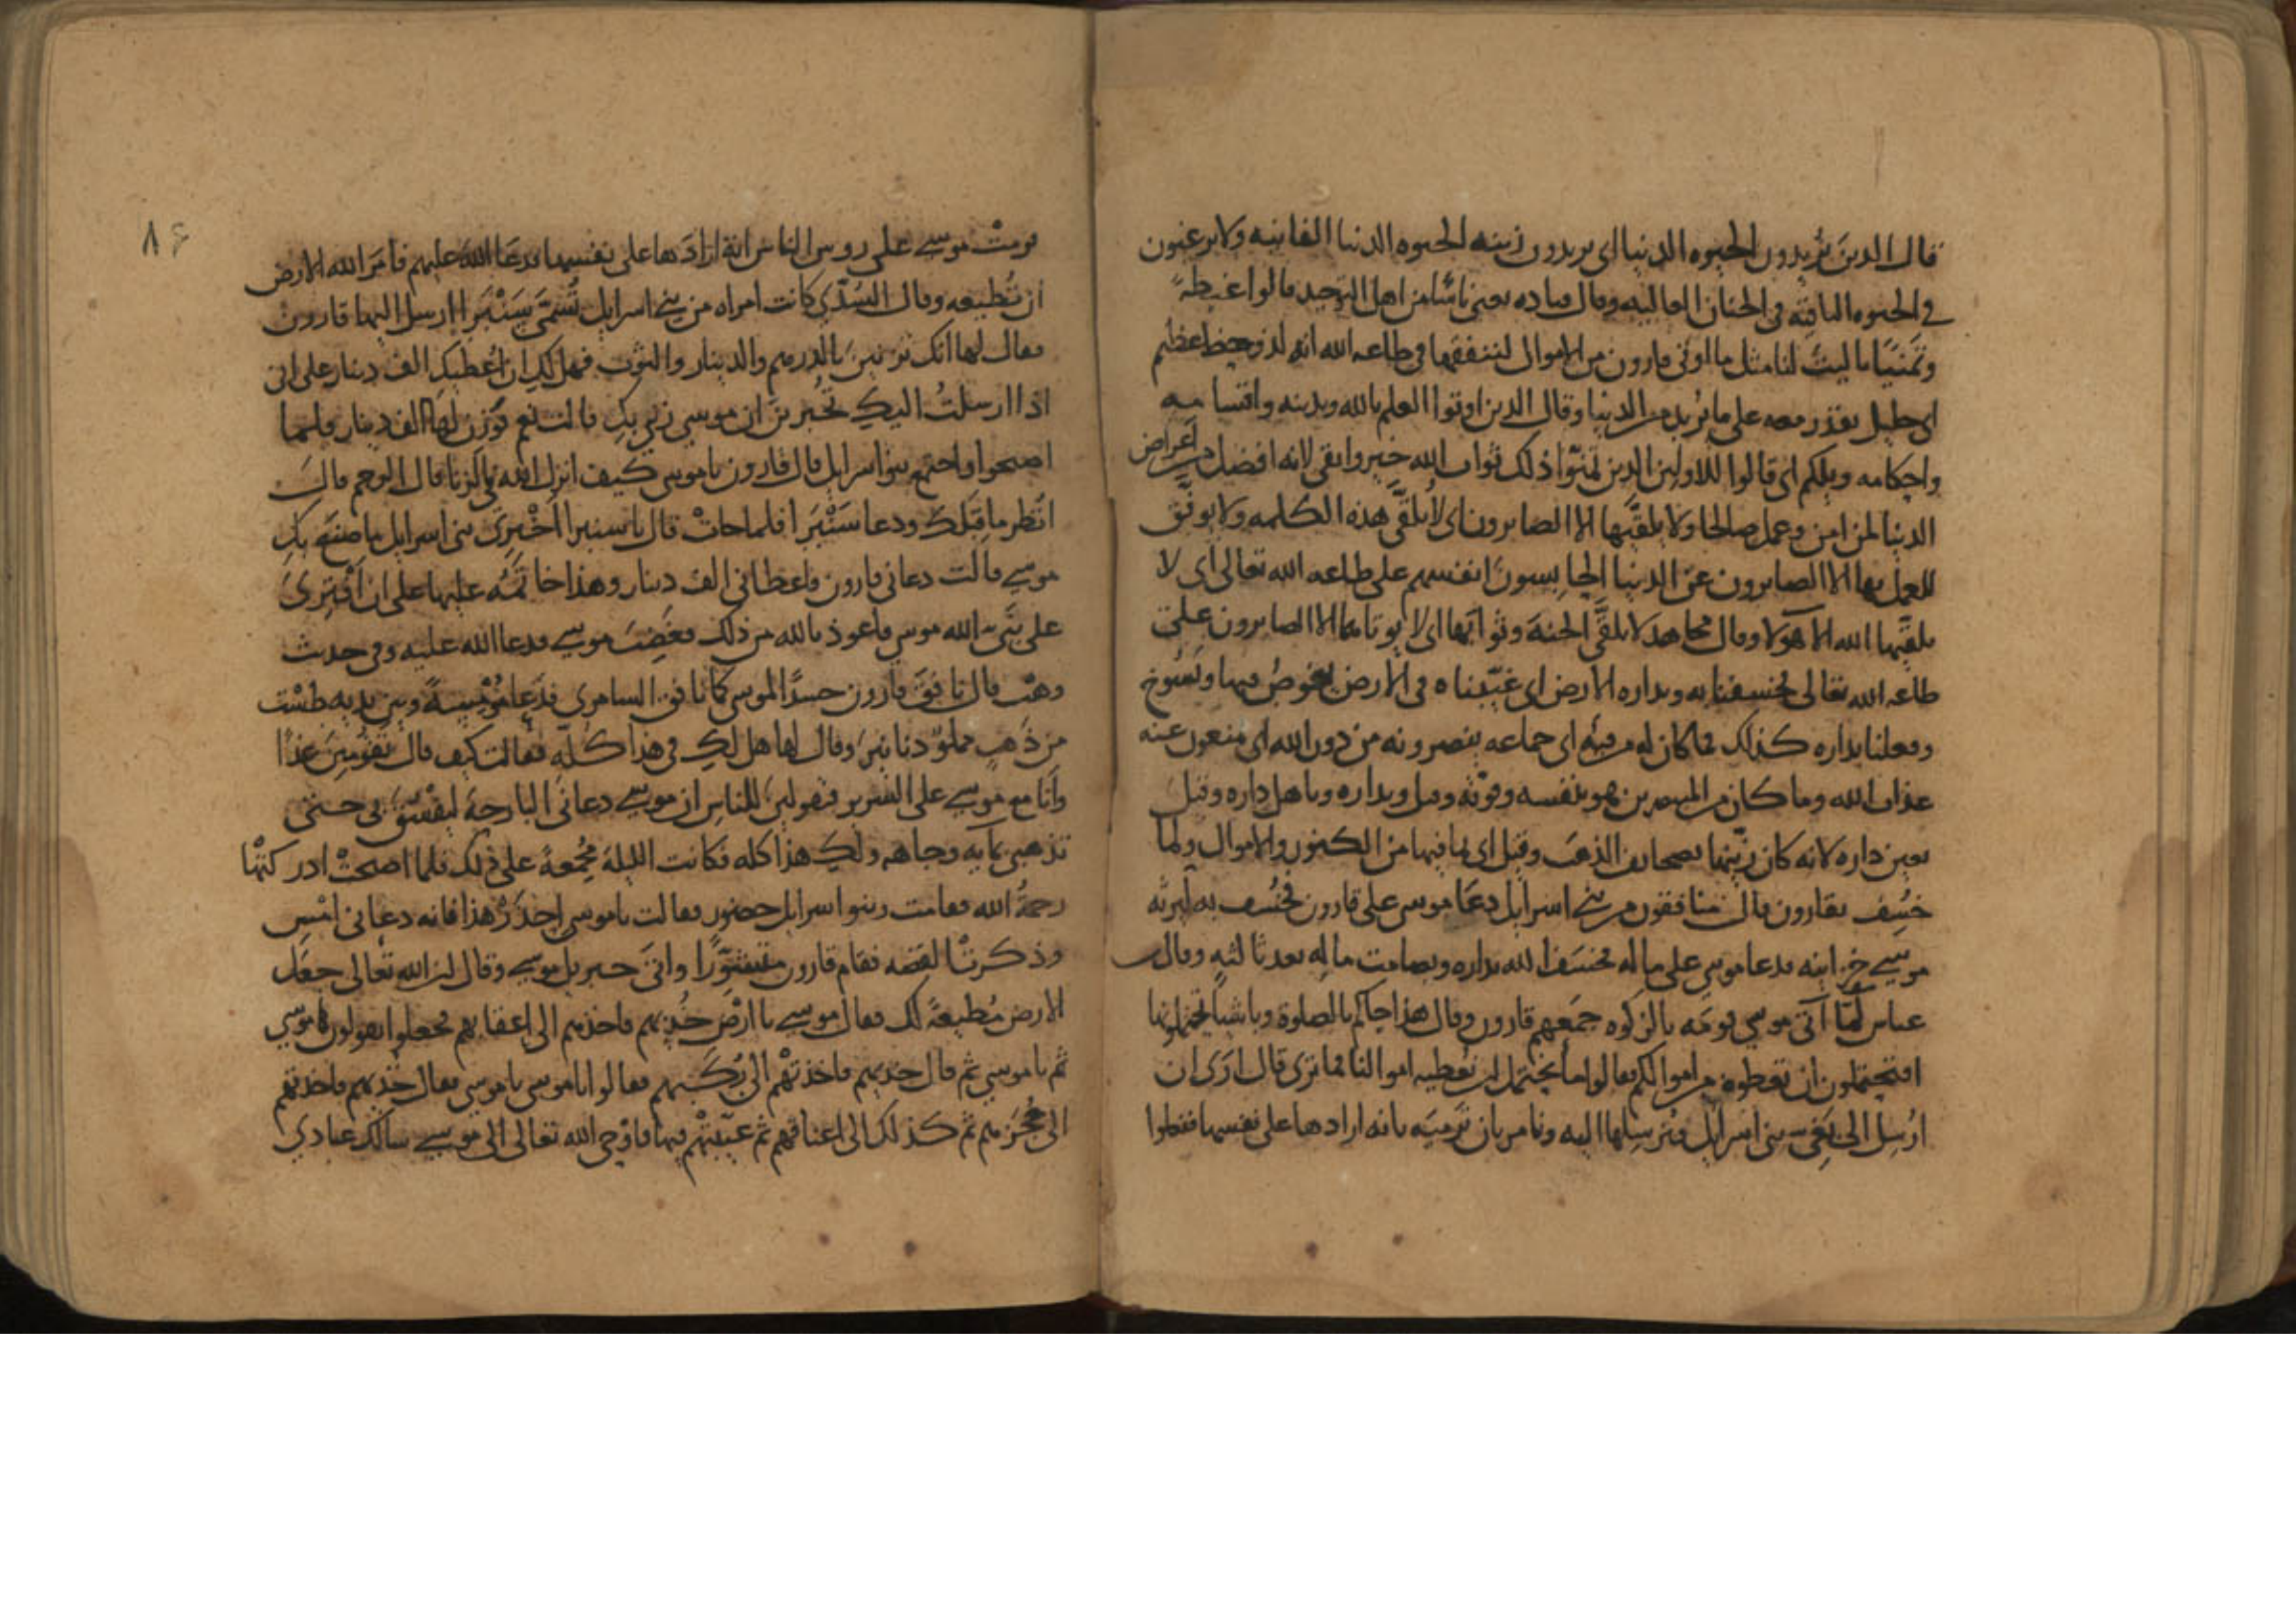 قال الذين يُريدون الحيوه الدنيا اى يريدون زينه الحيوه الدنيا الفانيه ولا يرغبون
فى الحيوه الباقيه فى الجنان العاليه وقال قتاده يعنى ناسًا من اهل التوحيد قالوا غبطةً
وتمنيًا يا ليت لنا مثل ما اوتى قارون من الاموال لننفقها فى طاعه الله انه لذو حظ عظيم
اى جليل يقدر معه على ما يريد من الدنيا وقال الذين اوتوا العلم بالله وبدينه
واحكامه ويلكم اى قالوا للاولين الذين تمنّوا ذلك ثواب الله خير وابقى لانه افضل من اعراض
الدنيا لمن امن وعمل صالحا ولا يلقيها الا الصابرون اى لا يلقّى هذه الكلمه ولا يوفّق
للعمل بها الا الصابرون عن الدنيا الحابسون انفسهم على طاعه الله تعالى اى لا
يلقيها الله الا هولا وقال مجاهد لا يلقّى الجنة وثوابها اى لا يوتاهما الا الصابرون على
طاعه الله تعالى فخسفنا به وبداره الارض اى غيّبناه فى الارض يغوصُ فيها ويسُوخ
وفعلنا بداره كذلك فما كان له من فيه اى جماعه ينصرونه من دون الله اى منعون عنه
عذاب الله وما كان من المنتصرين هو بنفسه وقوته وقيل وبداره وباهل داره وقيل
بعين داره لانه كان زيّنها بصحايف الذهب وقيل اى بما فيها من الكنوز والاموال ولما
خُسِف بقارون قال منافقون من بنى اسرايل دعا موسى على قارون فخُسف به ليرثه
موسى خزاينه فدعا موسى على ماله فخسف الله بداره وبصامت ماله بعد ثالثه وقال
عباس لمّا اتى موسى قومَه بالزكوه جمعهم قارون وقال هذا جاكم بالصلوة وباشيا تحتملونها
افتحتملون ان تعطوه من اموالكم فقالوا ما نحتمل ان نعطيه اموالنا فما ترى قال ارى ان
ارسل الى بَغىّ بنى اسرايل فنرسلها اليه ونامر بان ترميَه بانه ارادها على نفسها ففعلوا
٨٤
فرمتْ موسى على روس الناس انه ارادها على نفسها فدعا الله عليهم فامر الله الارض
ان تُطيعه وقال السُّدّى كانت امراه من بنى اسرايل تُسمّى سَنْبَرا ارسل اليها قارون
فقال لها انك تزنين بالدرهم والدينار والثوب فهل لكِ ان اُعطيكِ الف دينار على انى
اذا ارسلتُ اليكِ تخبرين ان موسى زنى بكِ قالت نعم فوزن لها الف دينار فلما
اصبحوا واجتمع بنوا اسرايل قال قارون يا موسى كيف انزل الله فى الزنا قال الرجم قال
انظر ما قِبَلك ودعا سَنْبَرا فلما جاتْ قال يا سنبرا اخْبِرى بنى اسرايل ما صنع بكِ
موسى قالت دعانى قارون فاعطانى الف دينار وهذا خاتَمُه عليها على ان اَفْترىَ
على نبىّ الله موسى فاعوذ بالله من ذلك فغضِبَ موسى فدعا الله عليه وفى حديث
وهب قال نافق قارون حسدًا لموسى كما نافق السامرى فدعا مُومِسةً وبين يديه طشْت
من ذهب مملوٌ دنانير وقال لها هل لكِ فى هذا كلّه فقالت كيف قال تقومين غدًا
وانا مع موسى على السرير فتقولين للناس ان موسى دعانى البارحة ليفسق بى حتى
تذهبى بمايه وجاهه ولكِ هذا كله فكانت الليلة مُجمِعةً على ذلك فلما اصبحتْ ادركتْها
رحمةُ الله فقامت وبنوا اسرايل حضور فقالت يا موسى احذَرْ هذا فانه دعانى امْسِ
وذكرت القصه فقام قارون واتى جبريل موسى وقال ان الله تعالى جعل
الارض مُطيعةً لك فقال موسى يا ارْضُ خُذيهم فاخذتهم الى اعقابهم فجعلوا يقولون يا موسى
ثم يا موسى ثم قال خذيهم فاخذتْهم الى رُكَبهم فقالوا يا موسى يا موسى فقال خُذيهم فاخذتهم
الى حُجَزهم ثم كذلك الى اعناقهم ثم غيّبتْهم فيها فاوْحى الله تعالى الى موسى سالك عبادى